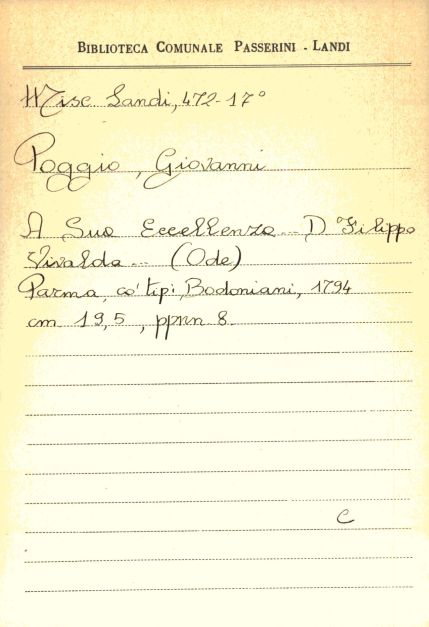 BIBLIOTECA COMUNALE PASSERINI - LANDI
Misc Landi, 472-17°
Poggio, Giovanni
A Sua Eccellenza... D Filippo
Vivalda... (Ode)
Parma, co' tipi Bodoniani, 1794
cm 19,5, ppnn 8.
C